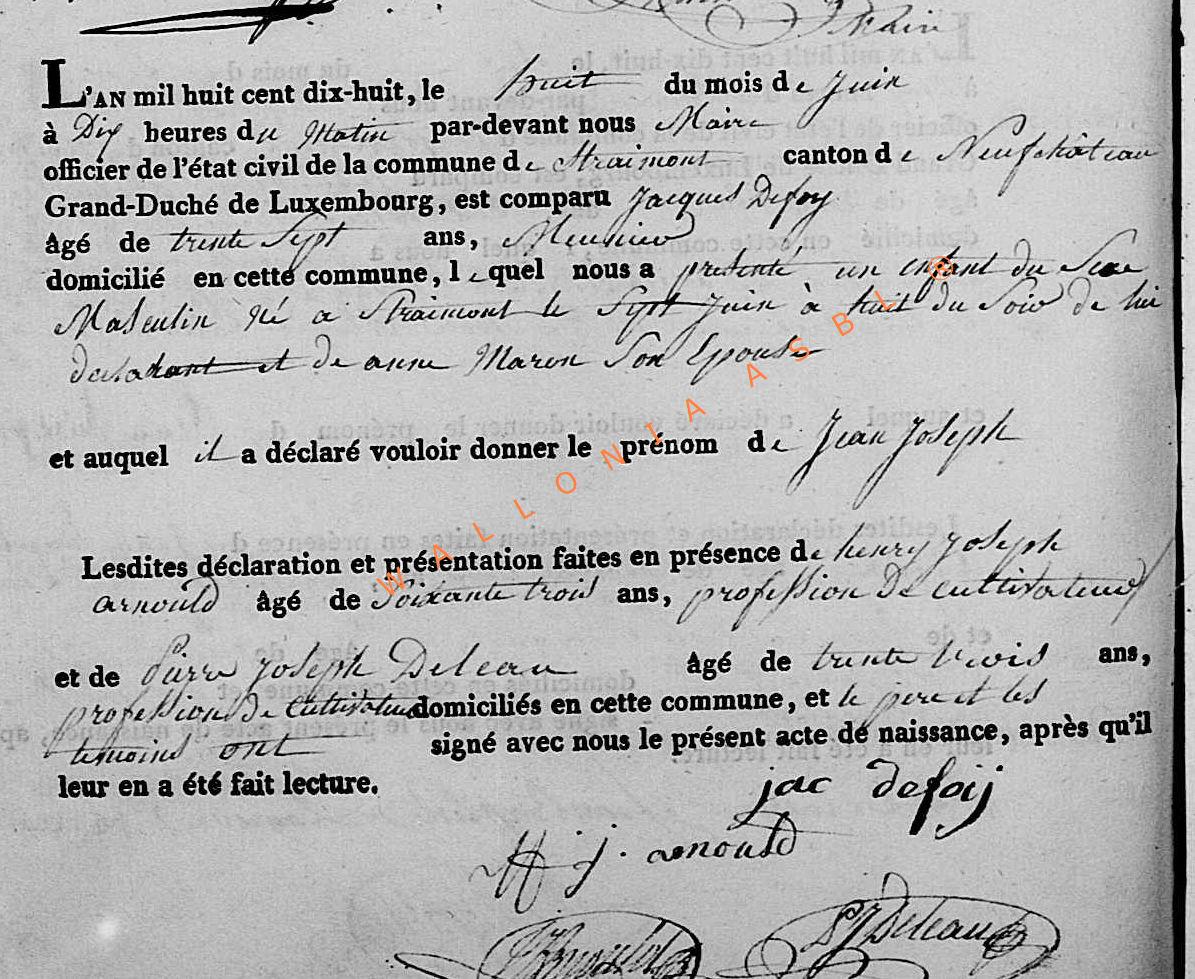 L'AN mil huit cent dix-huit, le huit du mois de Juin
à Dix heures du Matin par-devant nous Maire
officier de l'état civil de la commune de Straimont canton de Neufchâteau
Grand-Duché de Luxembourg, est comparu Jacques Defoy
âgé de trente Sept ans, Meunier
domicilié en cette commune, lequel nous a présenté un enfant du Sexe
Masculin Né a Straimont le Sept Juin à huit du Soir de lui
declarant et de anne Maron Son Epouse
et auquel il a déclaré vouloir donner le prénom de Jean Joseph
Lesdites déclaration et présentation faites en présence de henry Joseph
arnould âgé de Soixante trois ans, profession de cultivateur
et de Pierre Joseph Deleau âgé de trente trois ans,
profession de Cultivateur domiciliés en cette commune, et le pere et les
temoins ont signé avec nous le présent acte de naissance, après qu'il
leur en a été fait lecture.
jac defoij
H j. arnould
PJ Deleau
WALLONIA ASBL ®